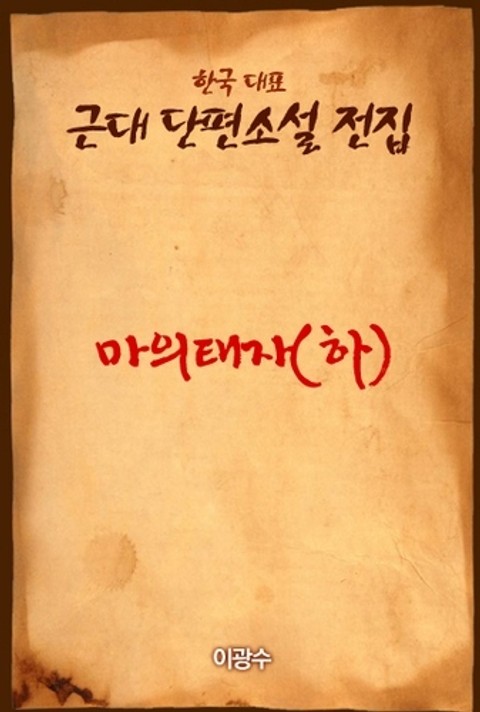 한국 대표
근대 단편소설 전집
마의태자(하)
이광수